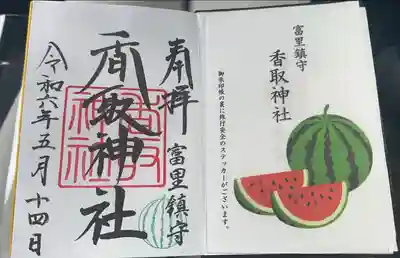 奉拝
富里鎮守
香取神社
令和六年五月十四日
香取神社
富里鎮守
香取神社
御朱印帳の裏に旅行安全のステッカーがございます。